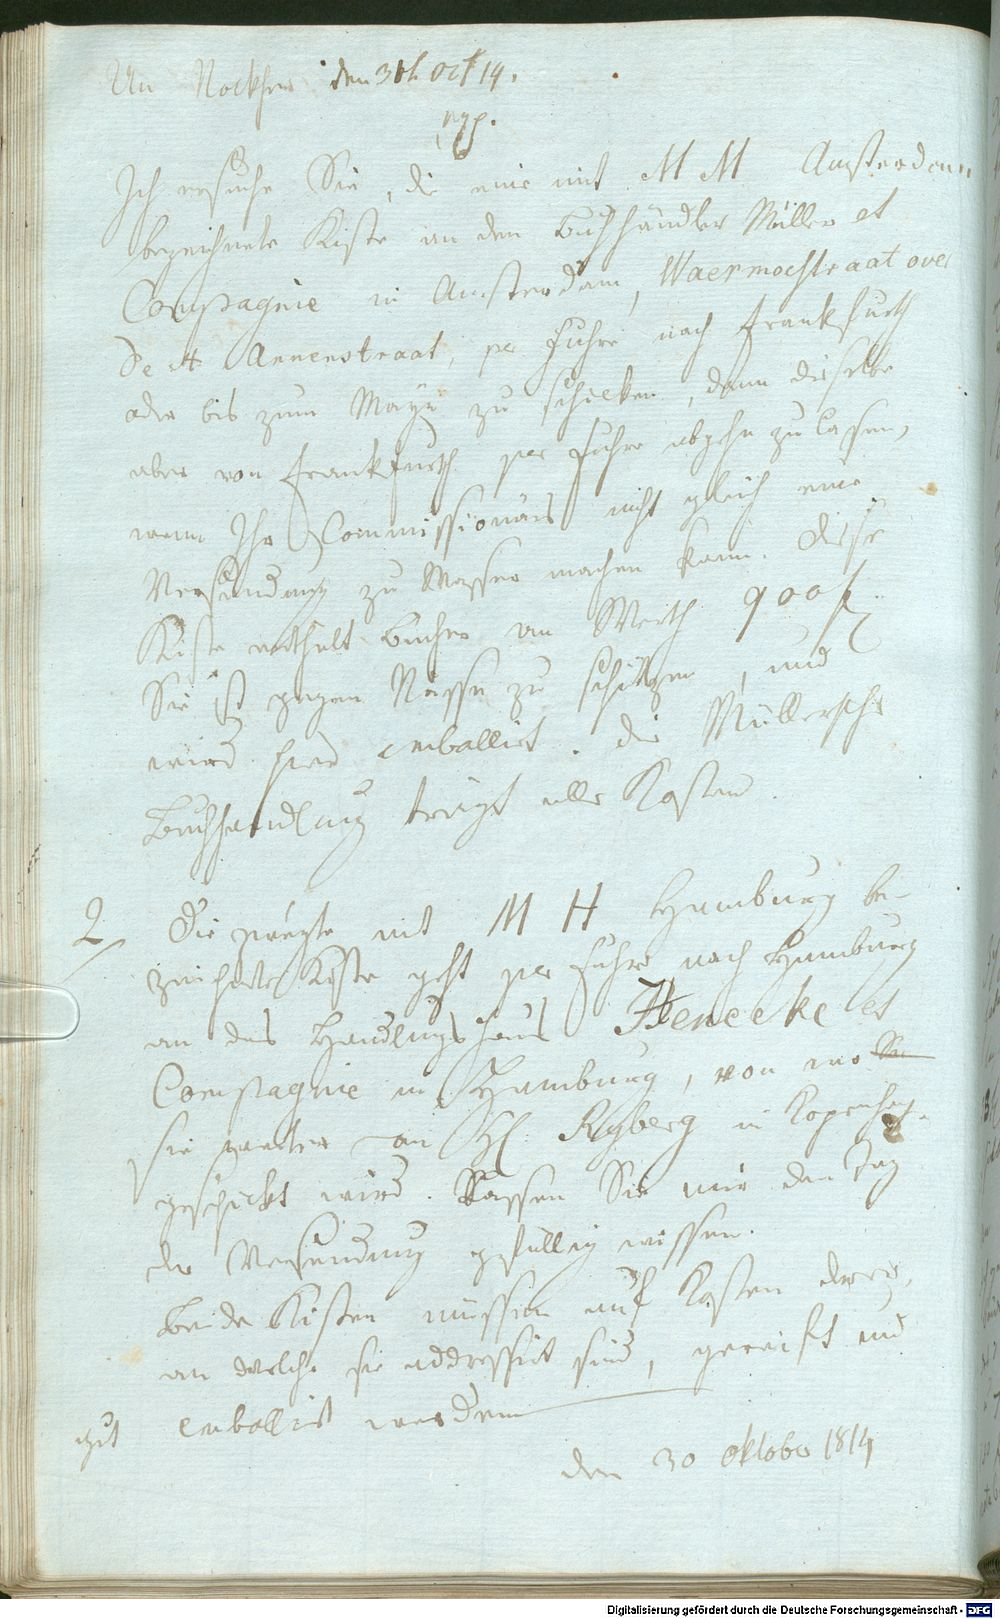 An Nockher den 31t. Oct 14.
Ich ersuche Sie, die eine mit M M Amsterdam
bezeichnete Kiste an den Buchhändler Müller et
Compagnie in Amsterdam, Waermoestraat over
de St Annenstraat, per Fuhre nach Frankfurth
oder bis zum Mayn zu schicken, dann dieselbe
aber von Frankfurth per Fuhre abgehn zu lassen,
wenn Ihr Commissionär nicht gleich eine
Versendung zu Wasser machen kann. Diese
Kiste enthält Bücher an Werth 900 f.
Sie ist gegen Nässe zu schützen, und
wird hier emballirt. die Müllersche
Buchhandlung trägt alle Kosten.
2/ Die zweyte mit M H Hamburg be-
zeichnete Kiste geht per Fuhre nach Hamburg
an das Handlungshaus Henecke et
Compagnie in Hamburg, von wo
sie weiter an H. Ryberg in Kopenhag.
geschickt wird. Lassen Sie mir den Tag
der Versendung gefällig wissen.
Beide Kisten müssen auf Kosten derer,
an welche sie addressirt sind, gereift und
gut emballirt werden
den 30 Oktober 1814
Digitalisierung gefördert durch die Deutsche Forschungsgemeinschaft - DFG